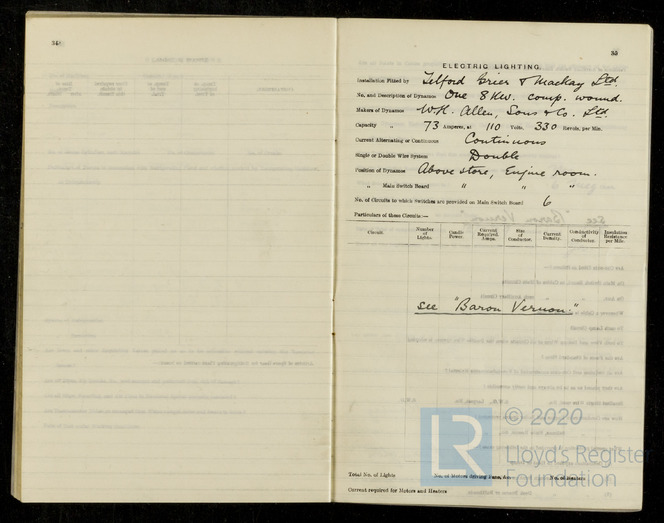 34
35
ELECTRIC LIGHTING.
Installation Fitted by Telford Grier & Mackay Ltd.
No. and Description of Dynamos One 8 Kw. comp. wound.
Makers of Dynamos W.H. Allen, Sons & Co. Ltd.
Capacity „ 73 Amperes, at 110 Volts, 330 Revols. per Min.
Current Alternating or Continuous Continuous
Single or Double Wire System Double
Position of Dynamos Above store, Engine room.
„ Main Switch Board „ „ „
No. of Circuits to which Switches are provided on Main Switch Board 6
Particulars of these Circuits:—
Circuit. Number of Lights. Candle Power. Current Required. Amps. Size of Conductor. Current Density. Conductivity of Conductor. Insulation Resistance per Mile.
see "Baron Vernon."
Total No. of Lights No. of Motors driving Fans, &c. No. of Heaters
Current required for Motors and Heaters
LR © 2020
Lloyd's Register
Foundation